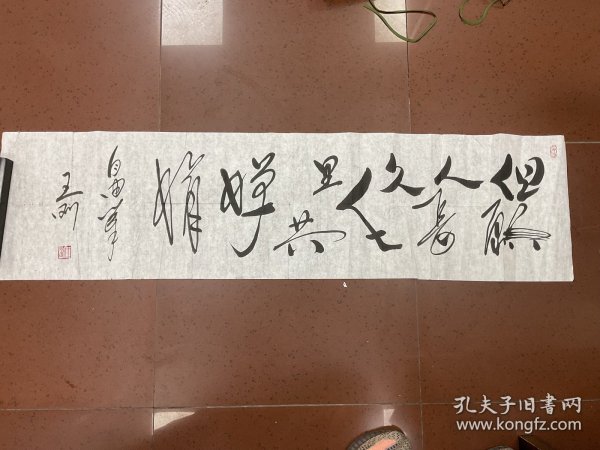 但願
人長
久千
里共
嬋
娟
王刚
孔夫子旧书网
www.kongfz.com